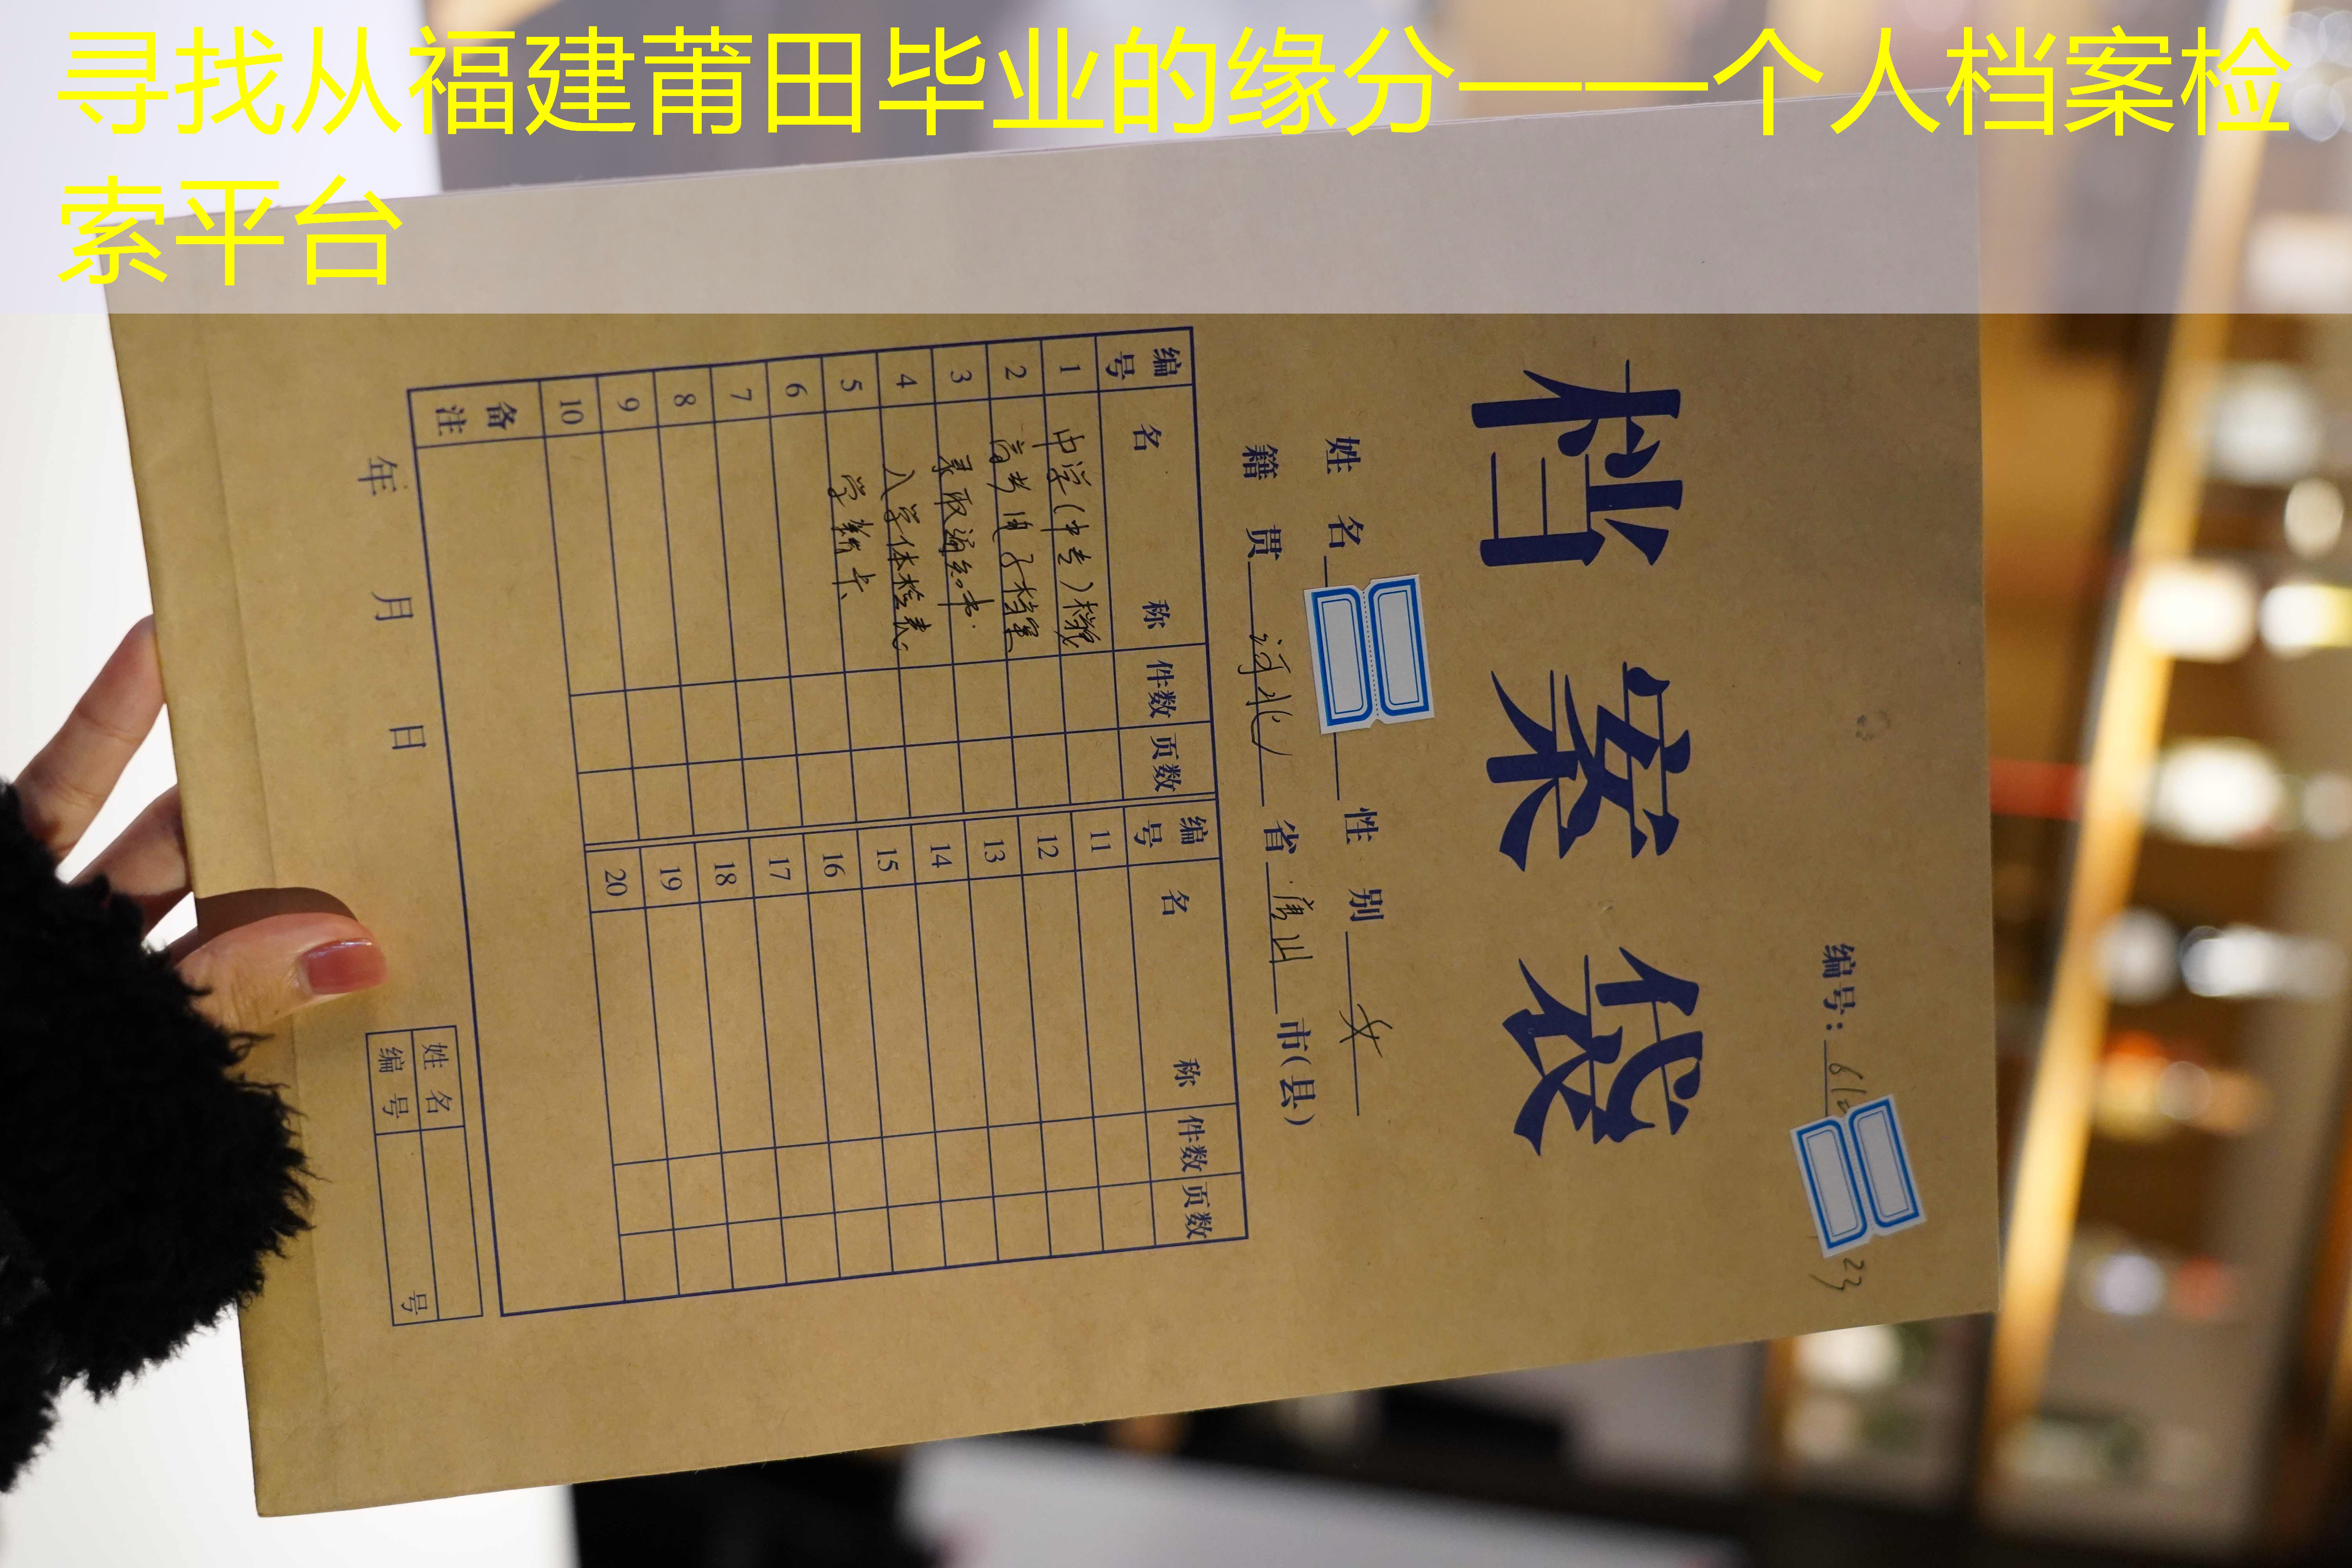 寻找从福建莆田毕业的缘分——个人档案检
索平台
编号：612 23
档案袋
姓名 性别 女
籍贯 河北 省 唐山 市(县)
编号 名称 件数 页数 编号 名称 件数 页数
1 中学(中专)档案 11
2 高考电子档案 12
3 录取通知书 13
4 入学体检表 14
5 学籍卡 15
6 16
7 17
8 18
9 19
10 20
备注
年 月 日
姓名
编号 号